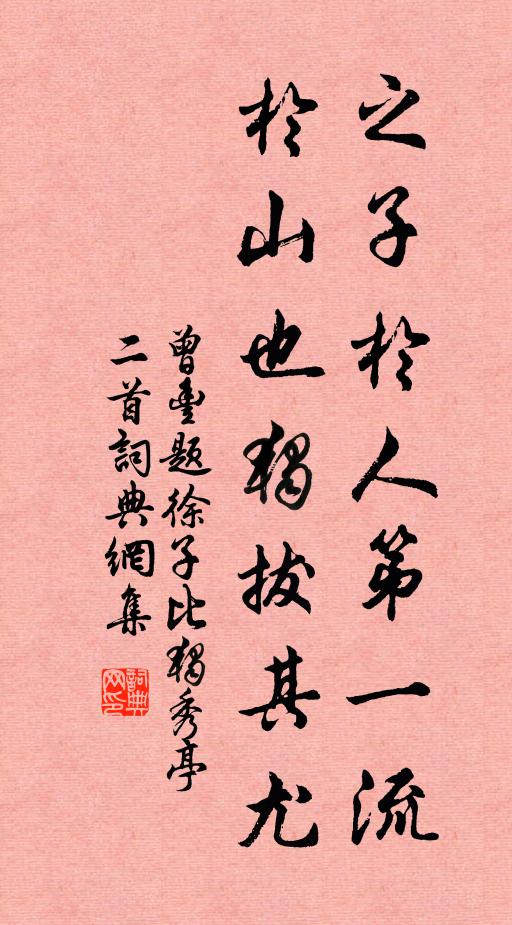 之子於人第一流
於山也獨拔其尤
曾豐題徐子比獨秀亭
二首詞典網集
詞典网印